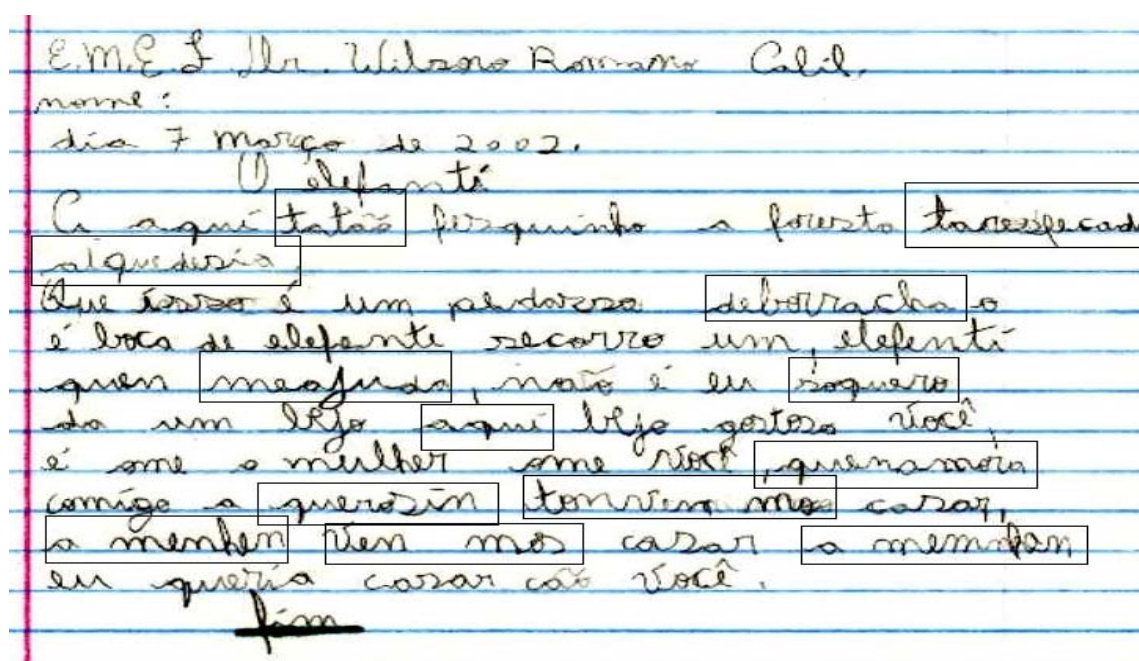 E.M.E.F Dr. Wilsono Romano Calil.
nome:
dia 7 março de 2002.
O elefanti
a aqui tatão fesquinho a foresta taresfecad
alquedesia
Que isso é um pedorssa deborracha o
é boca de elefante secorro um, elefanti
quen meajuda, não é eu soquero
da um bejo aqui bejo gostoso você,
é ome o mulher ome você, quenamora
comigo a querosin tonviva mos casar,
a menhen ven mos casar a memnhan
eu queria casar cão você.
fim